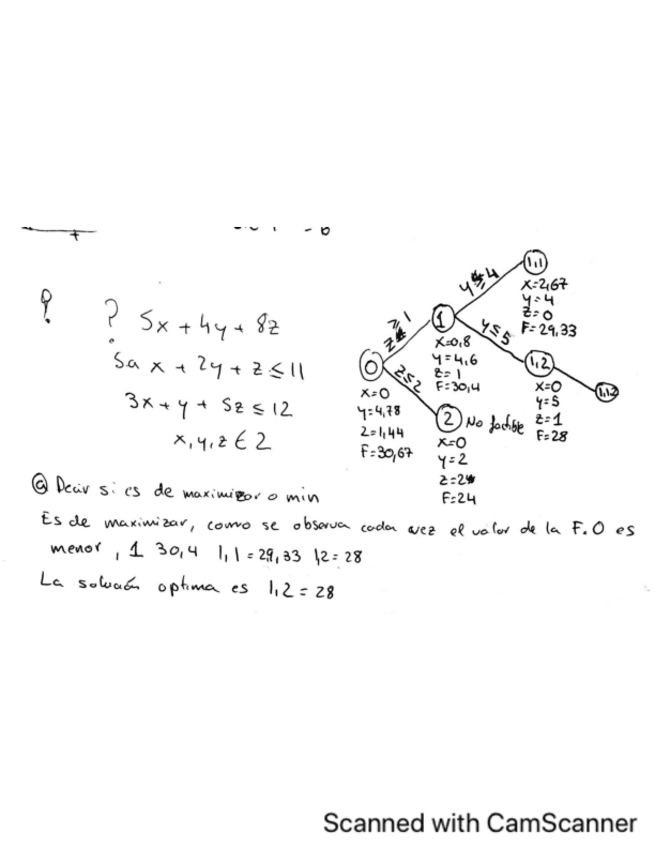 ?
? 5x + 4y + 8z
5a x + 2y + z ≤ 11
3x + y + 5z ≤ 12
x, y, z ∈ Z
0
x=0
y=4,78
z=1,44
F=30,67
≥ 1
z ≤ 2
1
x=0,8
y=4,6
z=1
F=30,4
2 No factible
x=0
y=2
F=24
y ≤ 4
1,1
x=2,67
y=4
z=0
F=29,33
y ≤ 5
1,2
x=0
y=5
z=1
F=28
a Decir si es de maximizar o min
Es de maximizar, como se observa cada vez el valor de la F.O es
menor, 1 30,4 1,1 = 29,33 1,2 = 28
La solución optima es 1,2 = 28
Scanned with CamScanner